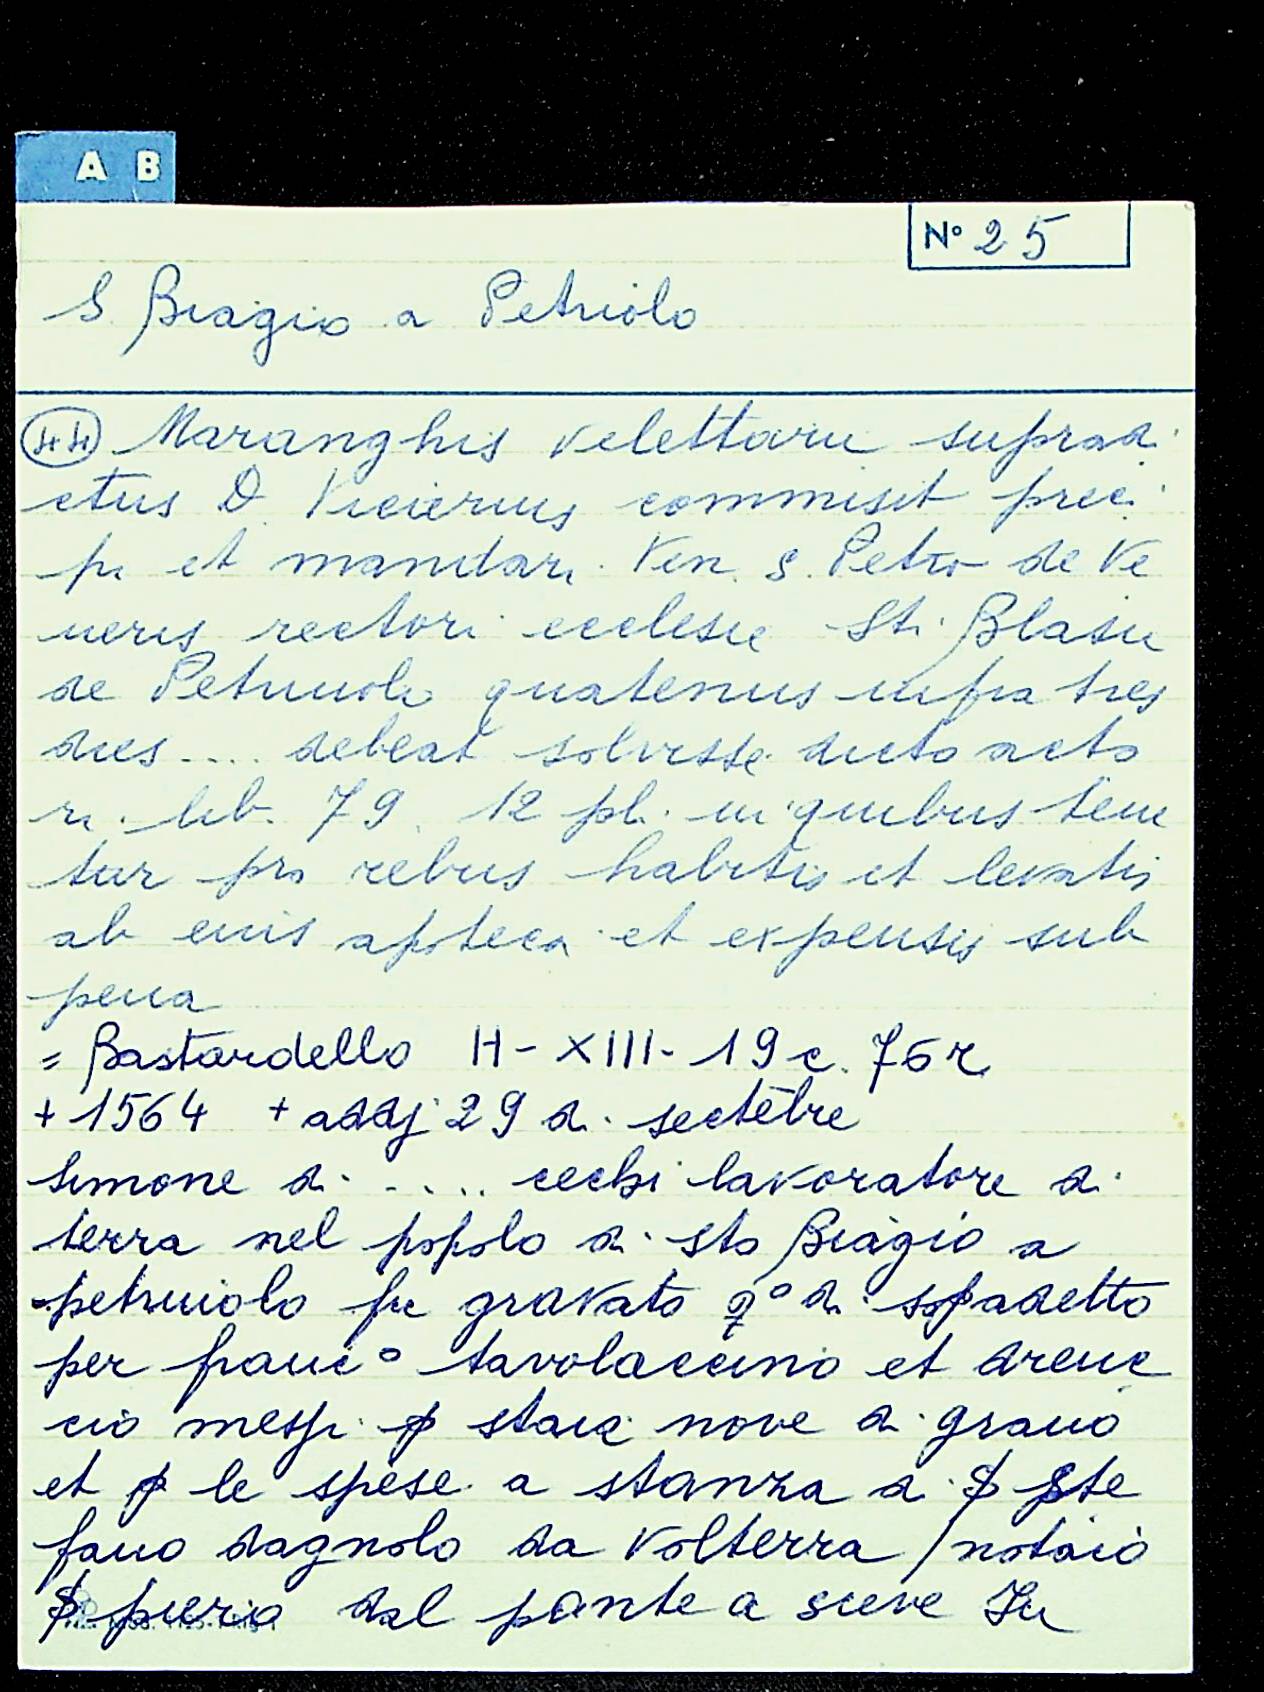 A B
N° 25
S. Biagio a Petriolo
44 Maranghis velettarii supradi
ctus D. Vicierius commisit preci
pi et mandari Ven. S. Petro de Ve
neris rectori ecclesie Sti. Blasii
de Petriuolo quatenus infra tres
dies .... debeat solvisse dicto acto
ri. lib. 79. 12 pl. in quibus tene
tur pro rebus habitis et levatis
ab eius apoteca et expensis sub
pena
= Bastardello H - XIII - 19 c. 76 r
+ 1564 + addj 29 di settēbre
Simone di ..... cechi lavoratore di
terra nel popolo di sto Biagio a
petriuolo fu gravato q° di sopadetto
per franc° tavolaccino et
cio messi p staia nove di grano
et p le spese a stanza di S Ste
fano dagnolo da Volterra / notaio
S pierio dal ponte a sieve In